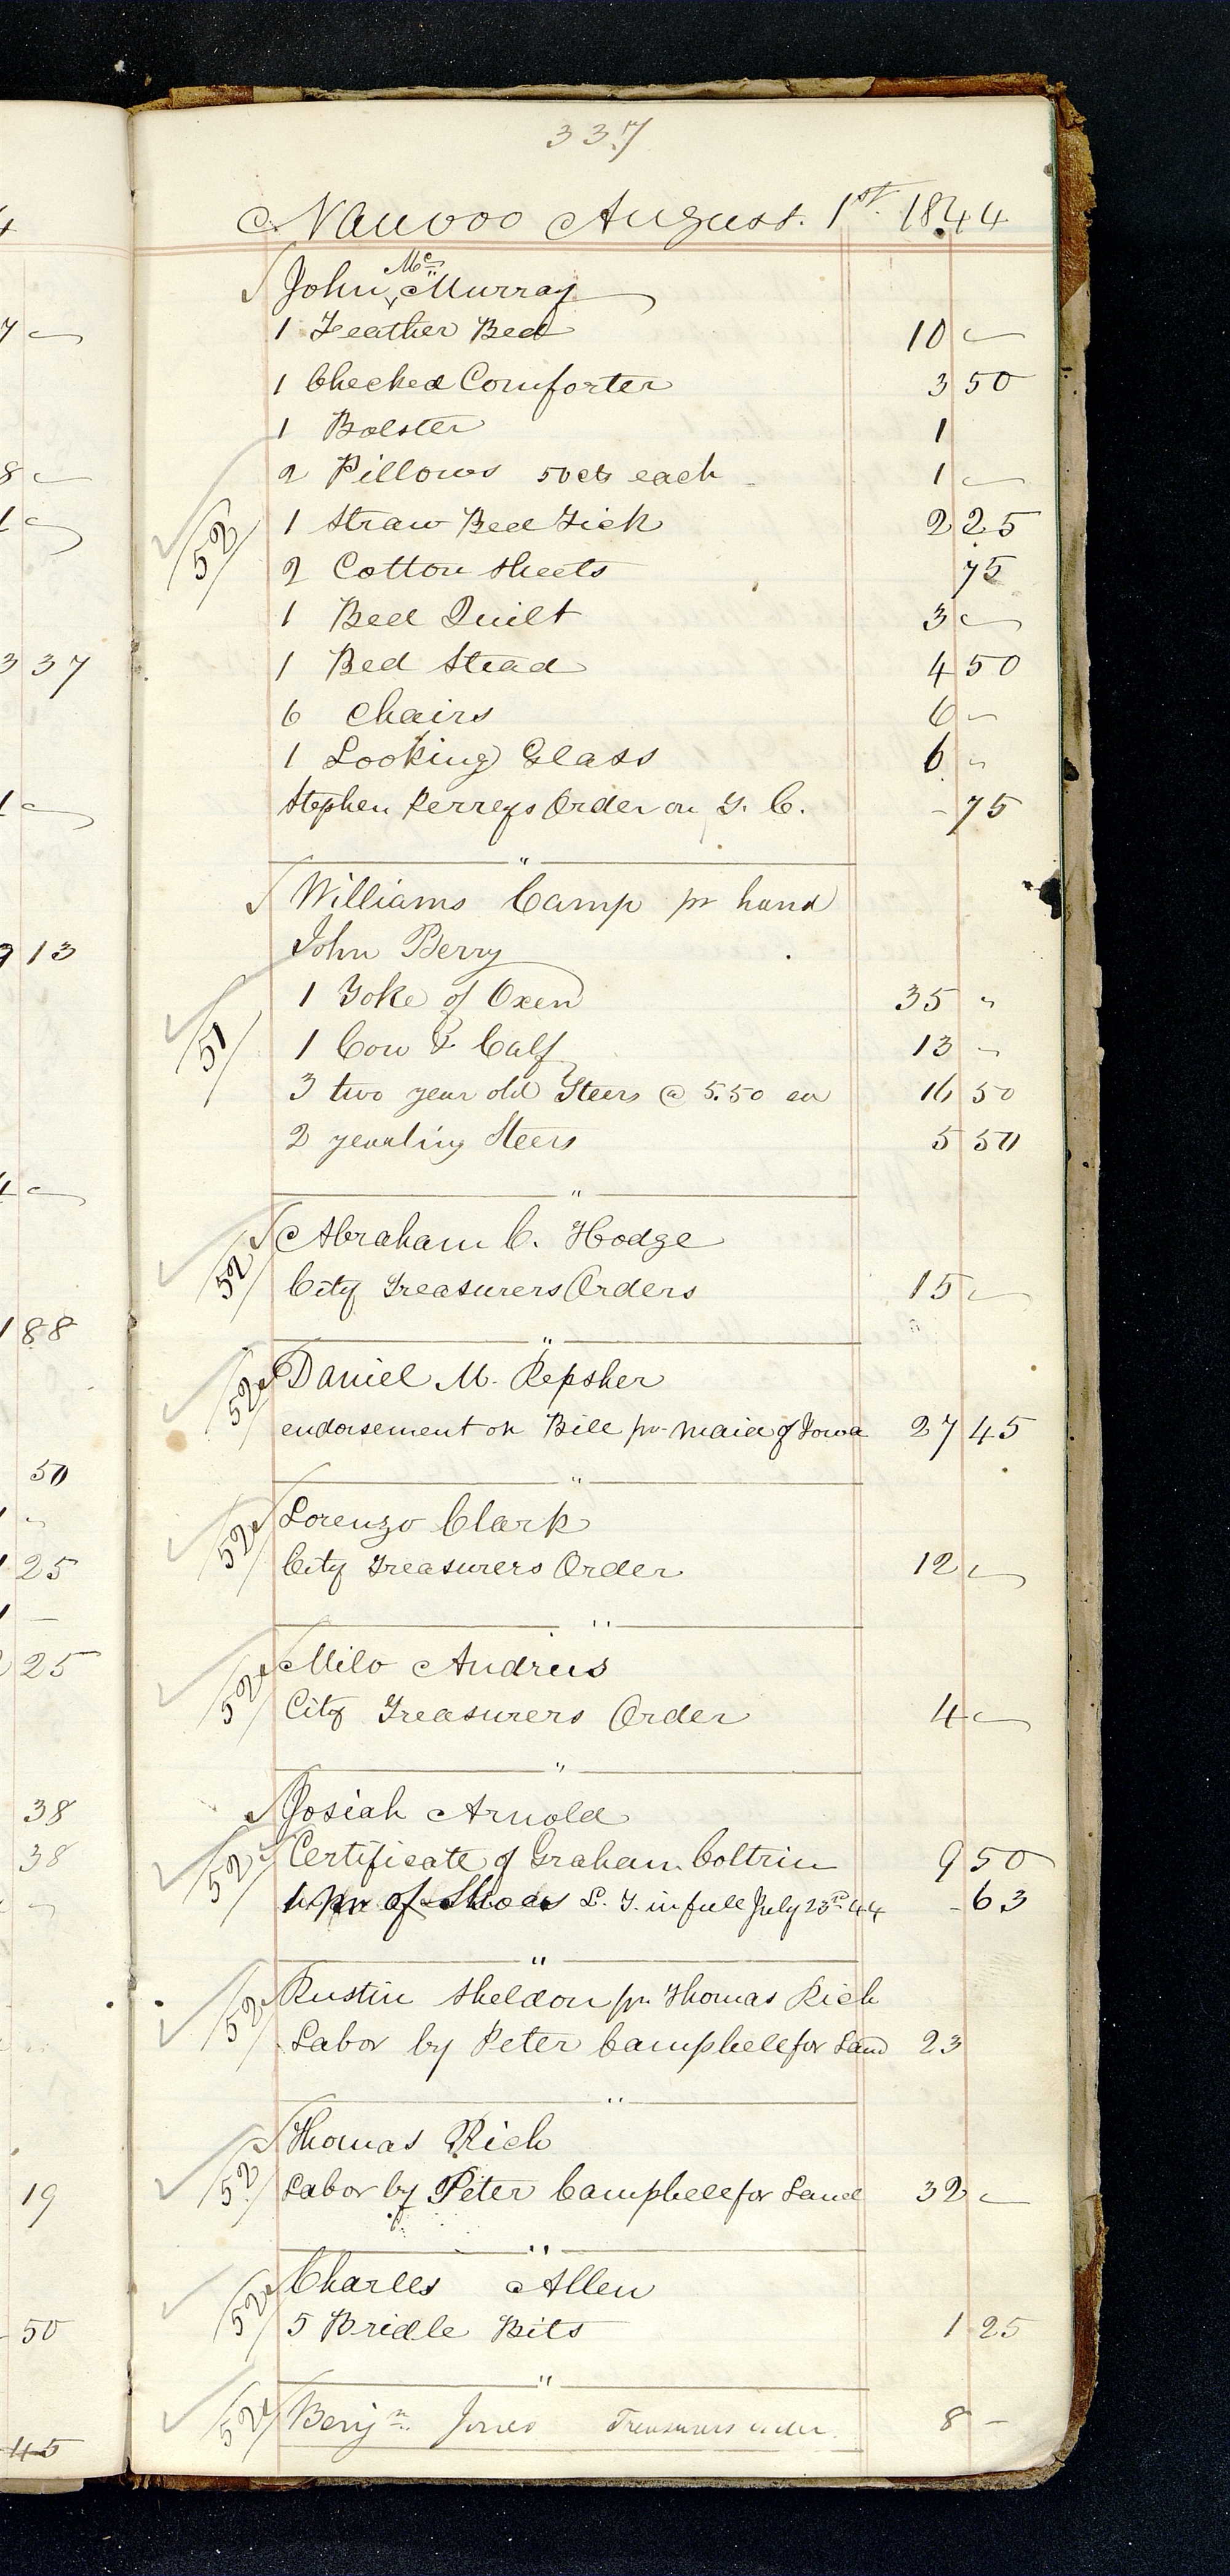 337
Nauvoo August. 1st. 1844
John Mc Murray
1 Feather Bed 10 "
1 Checked Comforter 3 50
1 Bolster 1
2 Pillows 50 cts each 1 "
52 1 Straw Bed Tick 2 25
2 Cotton Sheets 75
1 Bed Quilt 3 "
1 Bed Stead 4 50
6 Chairs 6 "
1 Looking Glass 6 "
Stephen Perrys Order on T. C. - 75
"
Williams Camp pr hand
John Berry
1 Yoke of Oxen 35 "
51 1 Cow & Calf 13 "
3 two year old Steers @ 5.50 ea 16 50
2 yearling Steers 5 50
"
Abraham C. Hodge
52 City Treasurers Orders 15 "
"
52 Daniel M. Repsher
endorsement on Bill pr Maid of Iowa 27 45
"
52 Lorenzo Clark
City Treasurers Order 12 "
"
52 Milo Andrus
City Treasurers Order 4 "
"
Josiah Arnold
52 Certificate of Graham Coltrin 9 50
1 pr of Shoes L. T. in full July 23rd 44 - 63
"
52 Rustin Sheldon pr Thomas Rich
Labor by Peter Camphell for Land 23
"
Thomas Rich
52 Labor by Peter Camphell for Land 32 "
"
Charles Allen
52 5 Bridle Bits 1 25
"
52 Benjn. Jones Treasurers order 8 -
4
7 "
8 "
1 "
3 37
1 "
9 13
1 "
1 88
50
1 "
1 25
1 -
2 25
38
38
"
19
50
45